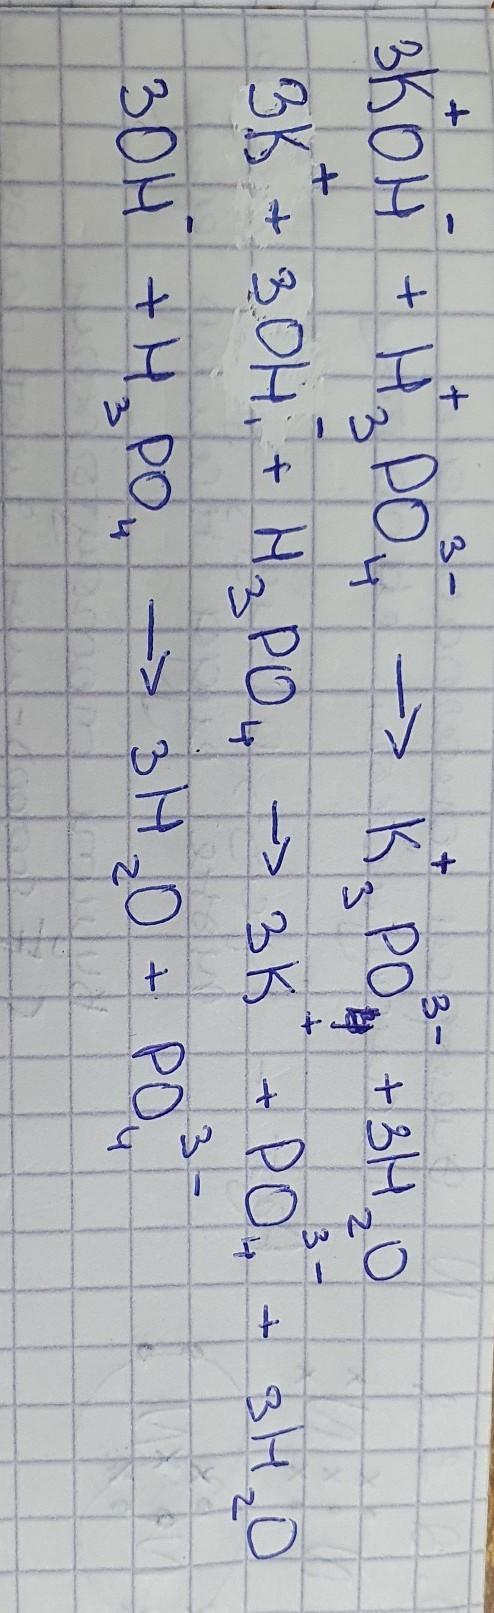 3K⁺OH⁻ + H₃⁺PO₄³⁻ → K₃⁺PO₄³⁻ + 3H₂O
3K⁺ + 3OH⁻ + H₃PO₄ → 3K⁺ + PO₄³⁻ + 3H₂O
3OH⁻ + H₃PO₄ → 3H₂O + PO₄³⁻